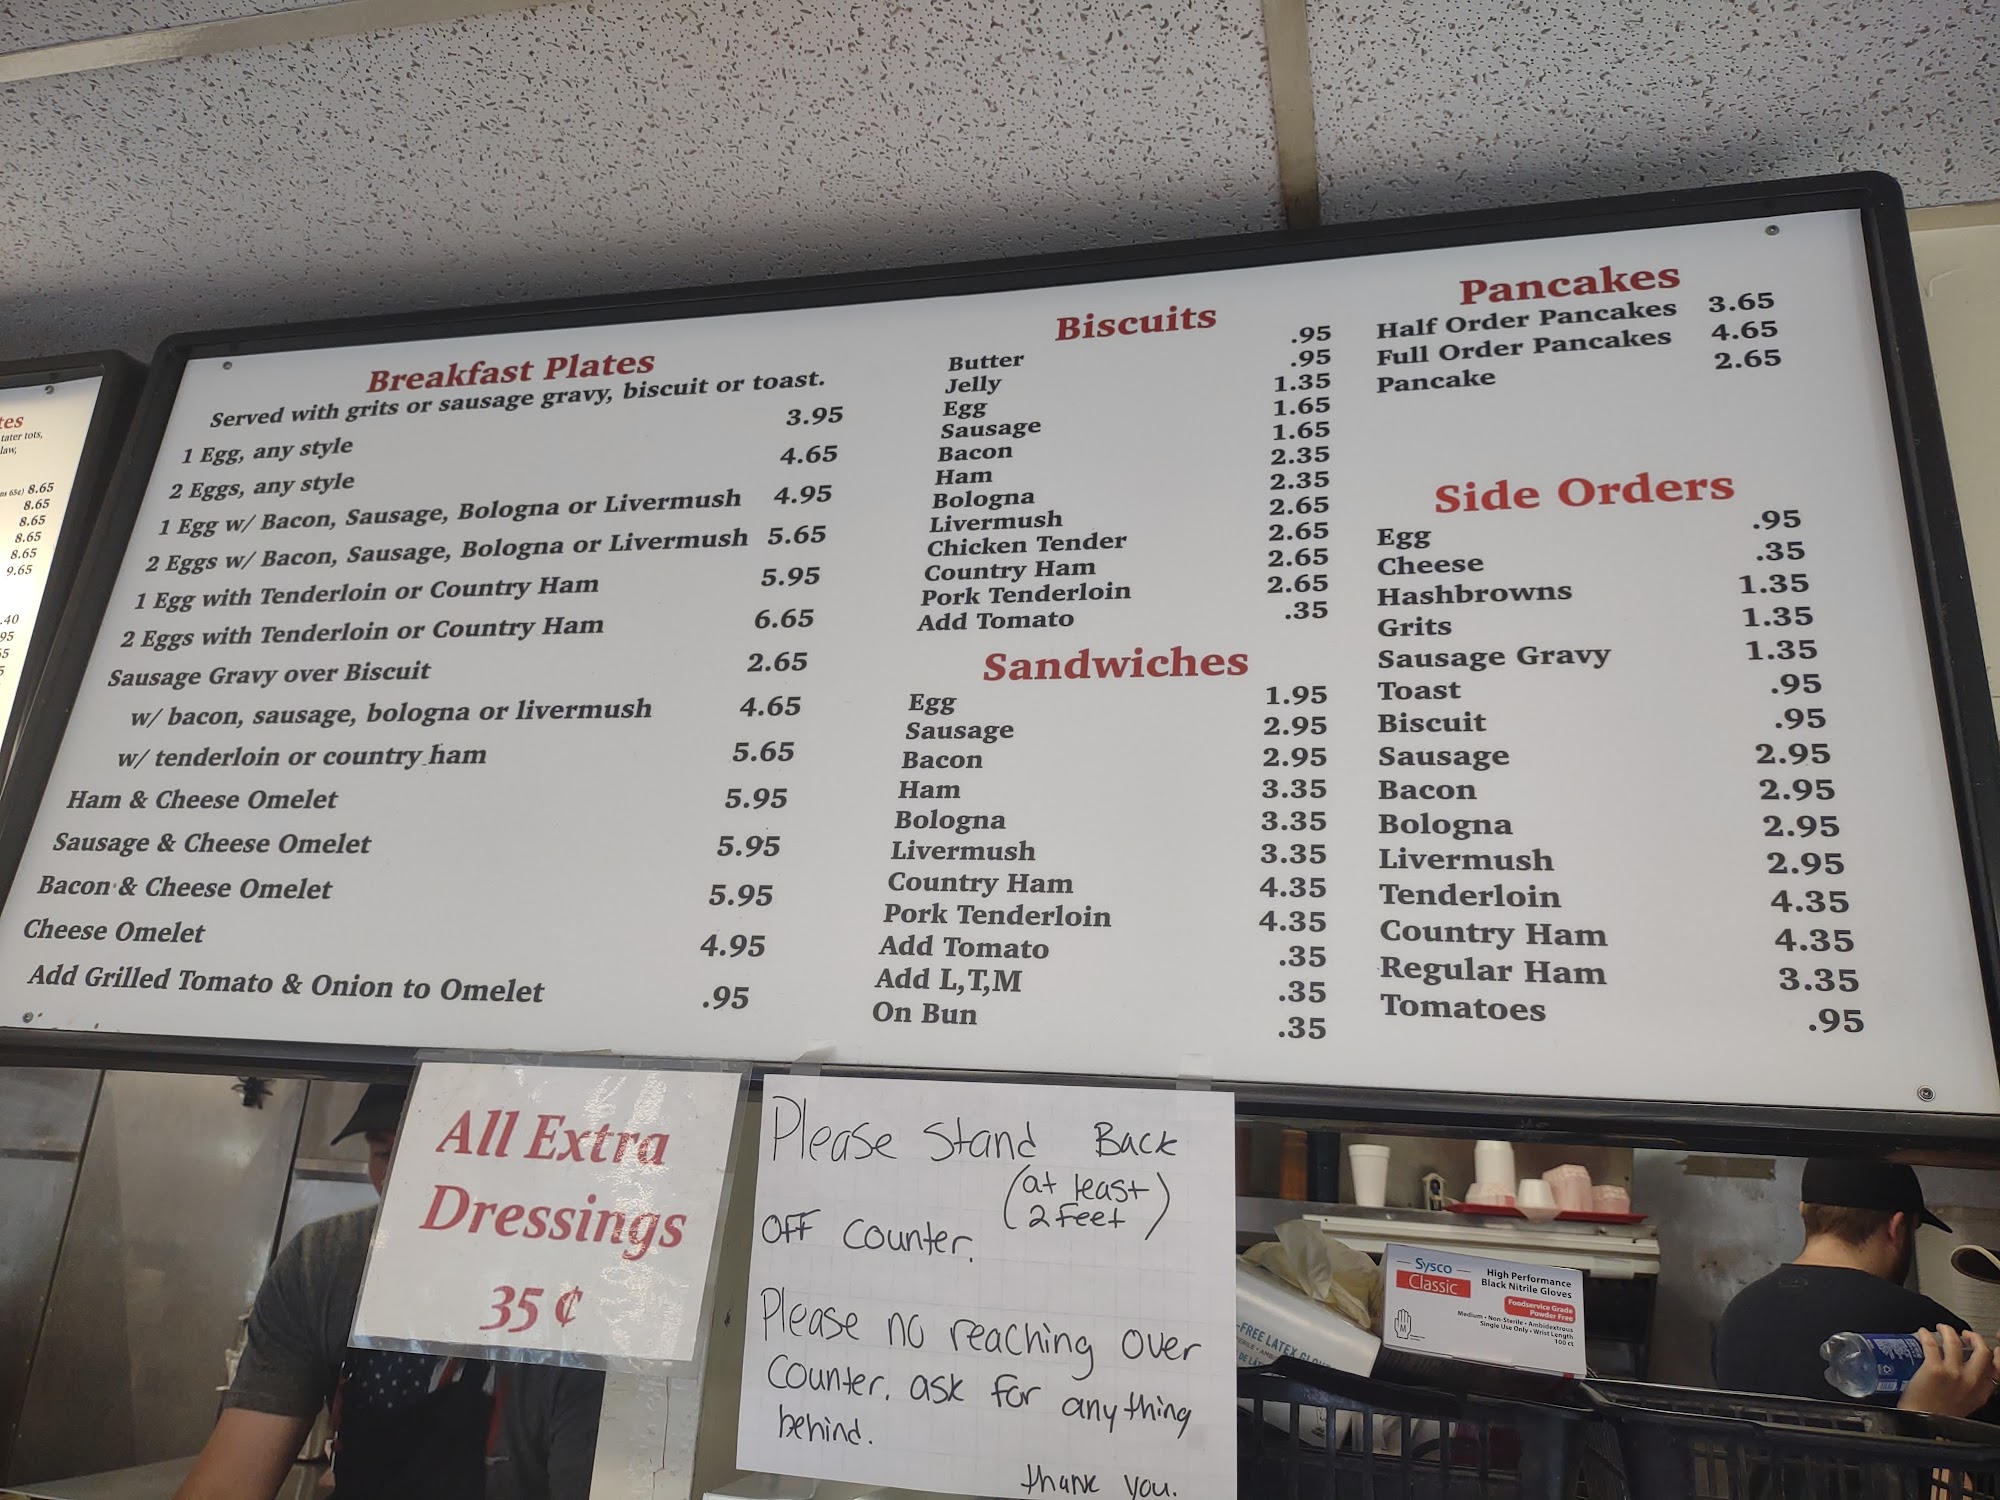 tes
tater tots,
law,
ns 65¢) 8.65
8.65
8.65
8.65
8.65
9.65
.40
95
Breakfast Plates
Served with grits or sausage gravy, biscuit or toast.
1 Egg, any style 3.95
2 Eggs, any style 4.65
1 Egg w/ Bacon, Sausage, Bologna or Livermush 4.95
2 Eggs w/ Bacon, Sausage, Bologna or Livermush 5.65
1 Egg with Tenderloin or Country Ham 5.95
2 Eggs with Tenderloin or Country Ham 6.65
Sausage Gravy over Biscuit 2.65
w/ bacon, sausage, bologna or livermush 4.65
w/ tenderloin or country ham 5.65
Ham & Cheese Omelet 5.95
Sausage & Cheese Omelet 5.95
Bacon & Cheese Omelet 5.95
Cheese Omelet 4.95
Add Grilled Tomato & Onion to Omelet .95
Biscuits
Butter .95
Jelly .95
Egg 1.35
Sausage 1.65
Bacon 1.65
Ham 2.35
Bologna 2.35
Livermush 2.65
Chicken Tender 2.65
Country Ham 2.65
Pork Tenderloin 2.65
Add Tomato .35
Sandwiches
Egg 1.95
Sausage 2.95
Bacon 2.95
Ham 3.35
Bologna 3.35
Livermush 3.35
Country Ham 4.35
Pork Tenderloin 4.35
Add Tomato .35
Add L,T,M .35
On Bun .35
Pancakes
Half Order Pancakes 3.65
Full Order Pancakes 4.65
Pancake 2.65
Side Orders
Egg .95
Cheese .35
Hashbrowns 1.35
Grits 1.35
Sausage Gravy 1.35
Toast .95
Biscuit .95
Sausage 2.95
Bacon 2.95
Bologna 2.95
Livermush 2.95
Tenderloin 4.35
Country Ham 4.35
Regular Ham 3.35
Tomatoes .95
All Extra
Dressings
35 ¢
Please Stand Back
(at least
2 feet)
OFF counter.
Please no reaching over
counter. ask for anything
behind.
thank you.
-FREE LATEX
Sysco
Classic
High Performance
Black Nitrile Gloves
Foodservice Grade
Powder Free
Medium • Non-Sterile • Ambidextrous
Single Use Only • Wrist Length
100 ct
M